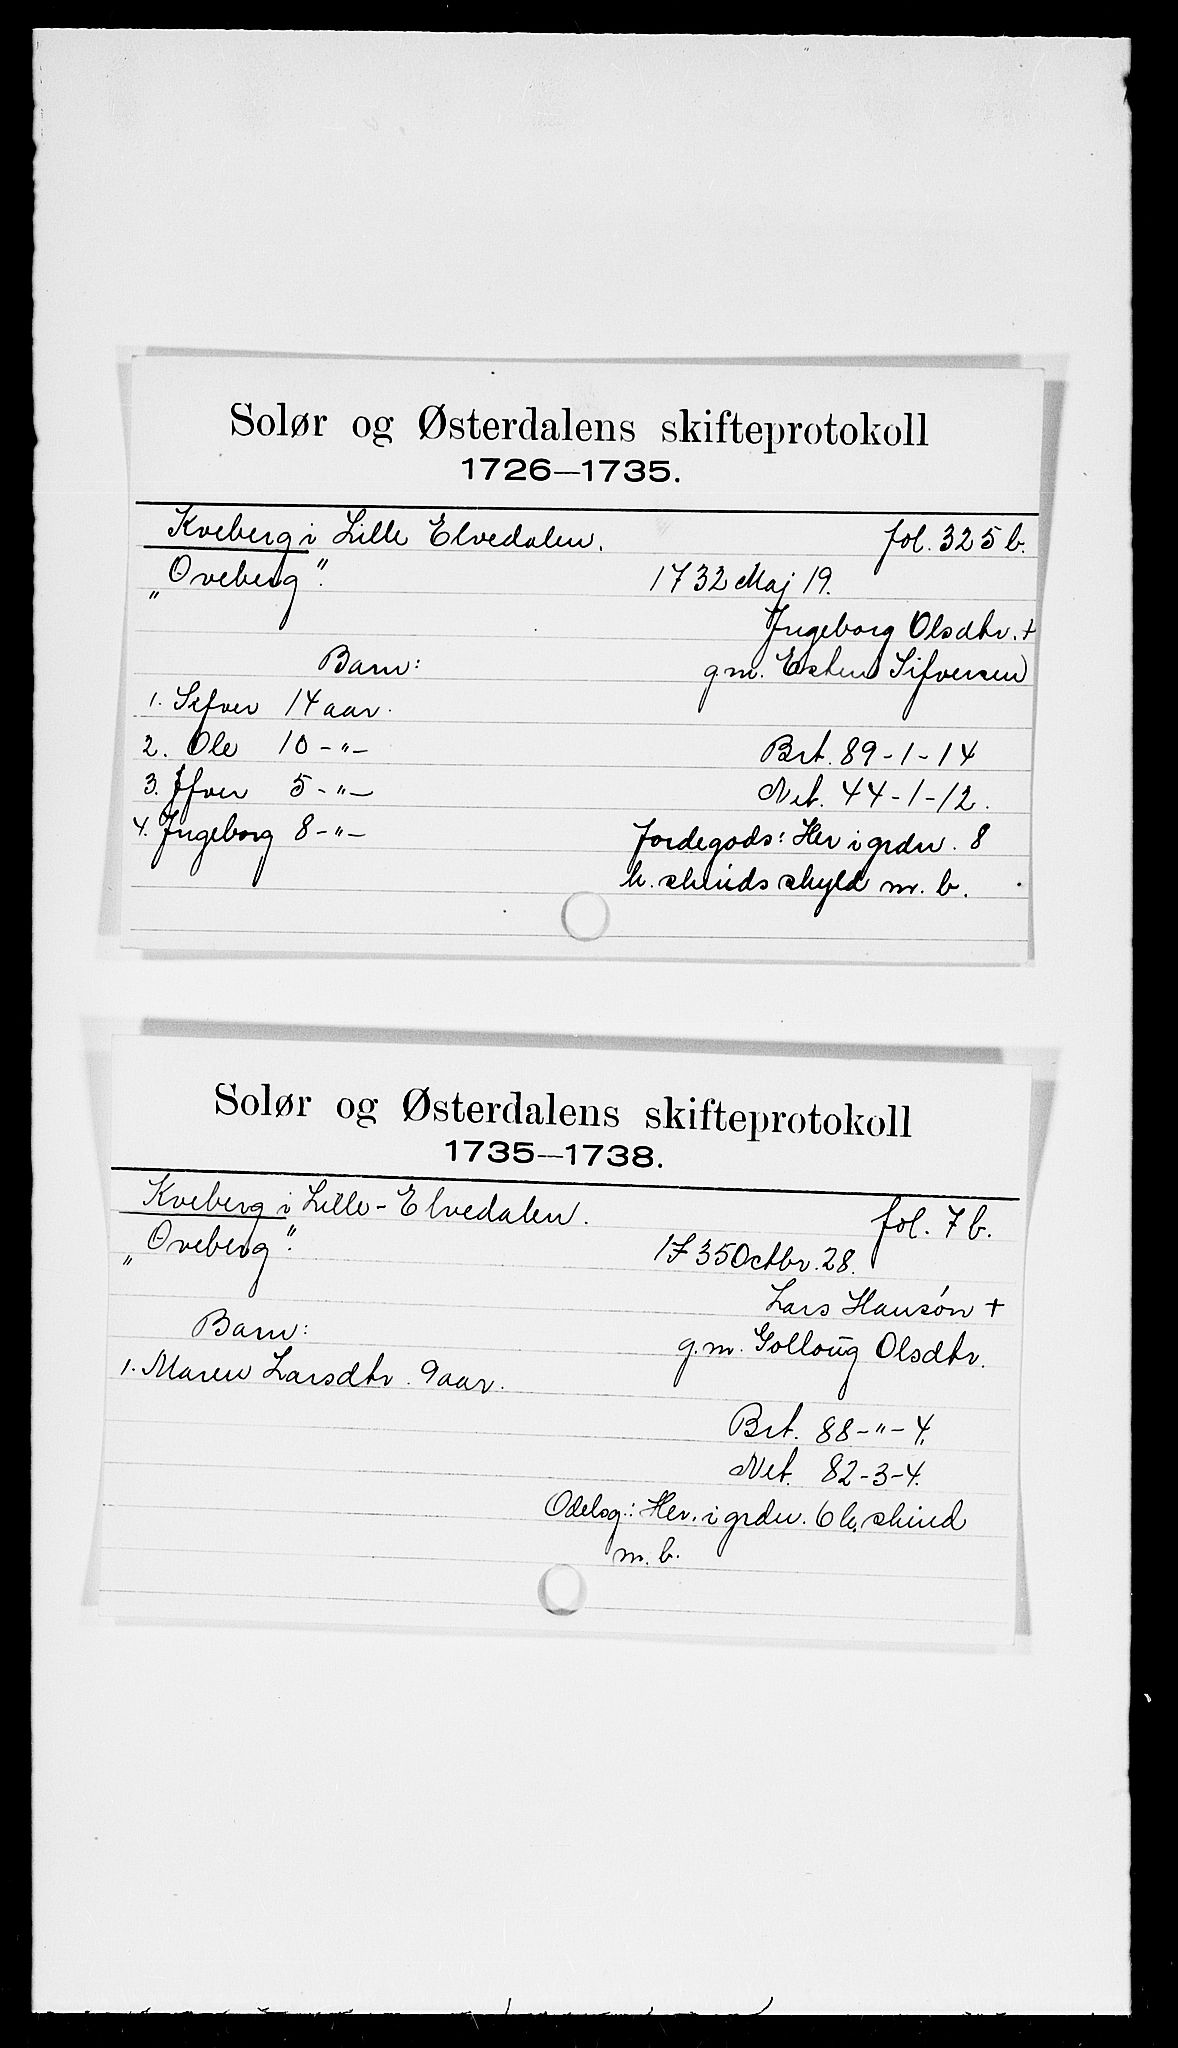 Solør og Østerdalens skifteprotokoll
1726—1735.
Kveberg i Lille Elvedalen. fol. 325 b.
„Oveberg". 1732 Maj 19.
Ingeborg Olsdtr. +
Barn: gm. Esten Sifversen
1. Sifver 14 aar.
2. Ole 10 -"- Brt. 89-1-14
3. Ifver 5 -"- Net. 44-1-12.
4. Ingeborg 8 -"- Jordegods: Her i grdn. 8
h. skinds skyld m. b.
Solør og Østerdalens skifteprotokoll
1735—1738.
Kveberg i Lille-Elvedalen. fol. 7 b.
„Oveberg". 1735 Octbr. 28.
Lars Hansøn +
Barn: g.m. Golloug Olsdtr.
1. Maren Larsdtr. 9 aar.
Brt. 88-"-4.
Net. 82-3-4.
Odelsg.: Her. i grdn. 6 h. skind
m. b.